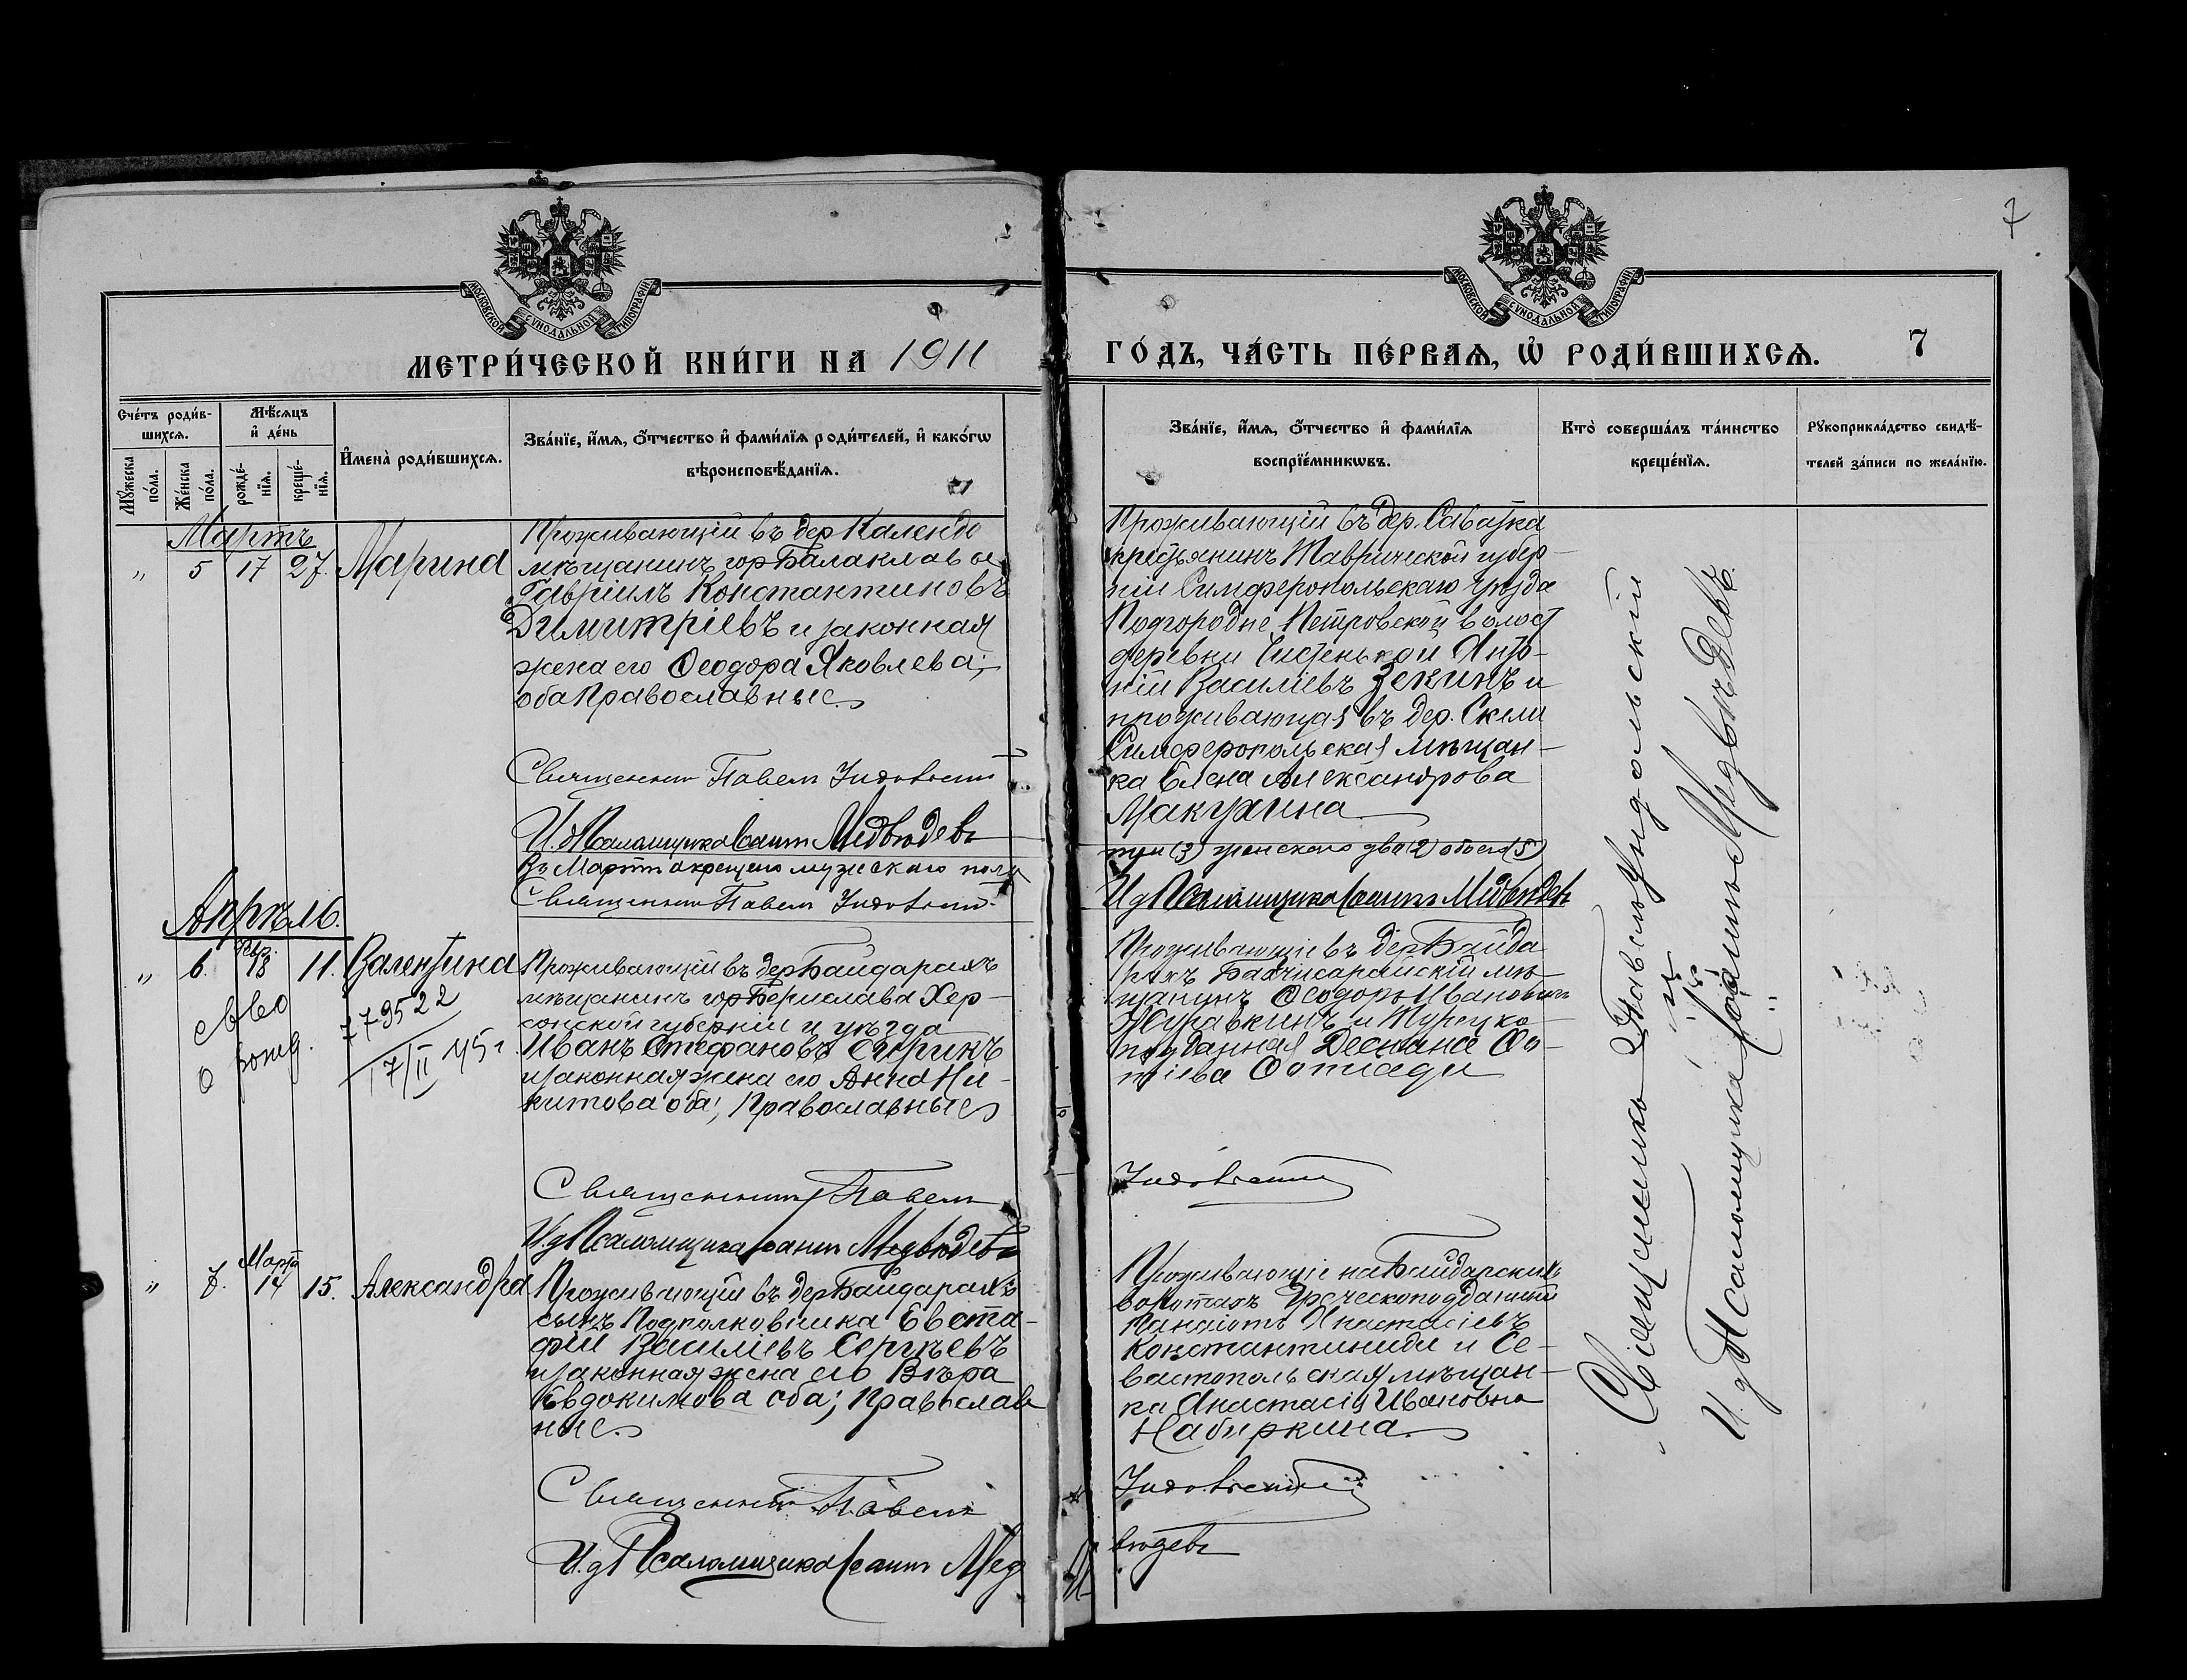 7
МОСКОВСКОЙ СУНОДАЛЬНОЙ ТИПОГРАФІИ
МОСКОВСКОЙ СУНОДАЛЬНОЙ ТИПОГРАФІИ
МЕТРИ́ЧЕСКОЙ КНИ́ГИ НА 1911
ГО́ДЪ, ЧА́СТЬ ПЕ́РВАѦ, Ѡ РОДИ́ВШИХСѦ. 7
Сче́тъ роди́в-
шихсѧ.
Мꙋ́жеска
по́ла.
Же́нска
по́ла.
Мѣ́сѧцъ
и҆ де́нь
рожде́-
нїѧ.
креще́-
нїѧ.
И҆мена̀ роди́вшихсѧ.
Зва́нїе, и҆́мѧ, ѻ҆́тчество и҆ фами́лїѧ роди́телей, и҆ како́гѡ
вѣроисповѣ́данїѧ.
Зва́нїе, и҆́мѧ, ѻ҆́тчество и҆ фами́лїѧ
воспрїе́мникѡвъ.
Кто̀ соверша́лъ та́инство
креще́нїѧ.
Рꙋкоприкла́дство свидѣ́-
телей за́писи по жела́нїю.
Мартъ
" 5 17 27. Марина
Проживающій въ дер Календо
мѣщанинъ гор Балаклавы
Гавріилъ Константиновъ
Димитріевъ и законная
жена его Ѳеодора Яковлева;
оба православные.
Священникъ Павелъ Индольскій
И. д Псаломщика Іоаннъ Медвѣдевъ
Въ Мартѣ окрещено мужескаго пола
Священникъ Павелъ Индольскій
Проживающій въ дер. Саватка
крестьянинъ Таврической губер-
ніи Симферопольскаго уѣзда
Подгородне Петровской волост
деревни Чистенькой Анто-
ній Василіевъ Зекинъ и
проживающая въ дер. Скели
Симферопольская мѣщан-
ка Елена Александрова
Макухина
три (3) женскаго два (2) обоего (5)
И д Псаломщика Іоаннъ Медвѣдевъ
Апрѣль.
" 6. Февр. 18 11. Валентина
св во
о рожд.
779522
17/II 45 г.
Проживающій въ дер Байдарахъ
мѣщанинъ гор Берислава Хер-
сонской губерніи и уѣзда
Иванъ Стефановъ
и законная жена его Анна Ни-
китова оба; православные
Священникъ Павелъ
И.д Псаломщика Іоаннъ Медвѣдевъ
Проживающіе въ дер Байда
рахъ Бахчисарайскій мѣ-
щанинъ Ѳеодоръ Ивановичъ
Журавкинъ и Турецко-
подданная
Индольскій
" 7. Март 14 15. Александра
Проживающій въ дер Байдарахъ
сынъ Подполковника Евста-
фій Василіевъ Сергѣевъ
и законная жена его Вѣра
Евдокимова оба; православ
ные.
Священникъ Павелъ
И.д Псаломщика Іоаннъ Мед
Проживающіе на Байдарскихъ
воротахъ Греческоподданный
Панаіотъ Анастасіевъ
Константиниди и Се-
вастопольская мѣщан-
ка Анастасія Ивановна
Набиркина.
Индольскій
вѣдевъ
Священникъ Павелъ Индольскій
и
И. д Псаломщика Іоаннъ Медвѣдевъ.